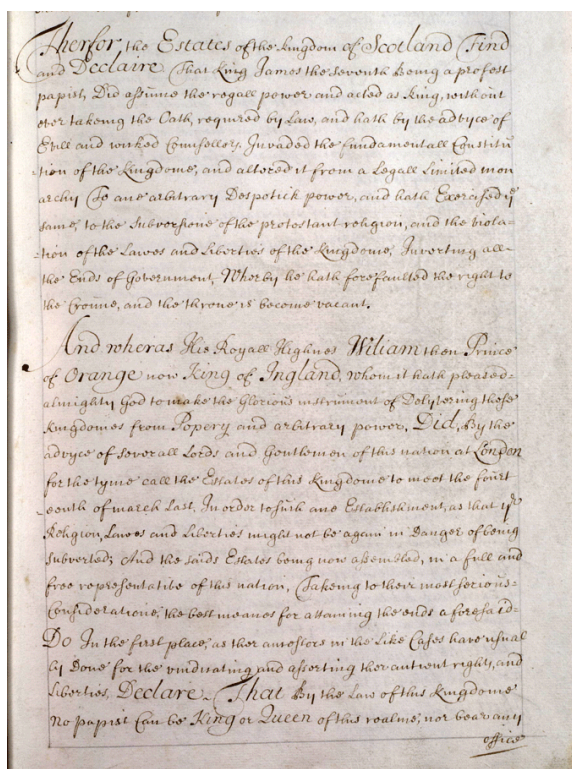 Therfor the Estates of the kingdom of Scotland Find
and Declaire That King James the seventh Being a profest
papist, Did assume the regall power and acted as King, without
ever takeing the Oath, required by Law, and hath by the advyce of
Evill and wicked Counsellors, Invaded the fundamentall Constitu
tion of the Kingdome, and altered it from a Legall Limited mon
archy To ane arbitrary Despotick power, and hath Exercised ye
same, to the subversione of the protestant religion, and the viola-
-tion of the Lawes and Liberties of the Kingdome, Inverting all-
the Ends of Government, Wherby he hath forefaulted the right to
the Croune, and the throne is become vacant.
And wheras His Royall Highnes William then Prince
of Orange now King of Ingland, whom it hath pleased-
almighty God to make the Glorious instrument of Delyvering these
kingdomes from Popery and arbitrary power, Did, By the
advyce of severall Lords and Gentlemen of this nation at London
for the tyme call the Estates of this Kingdome to meet the fourt
-eenth of march Last, In order to such ane Establishment, as that yr
Religion, Lawes and Liberties might not be again in Danger of being
subverted; And the saids Estates being now assembled, in a full and
free representative of this nation, Takeing to their most serious-
Consideratione, the best meanes for attaining the ends aforesaid-
Do In the first place, as ther ancestors in the Like Cases have usual
ly Done for the vindicating and asserting ther antient rights, and
Liberties, Declare. That By the Law of this Kingdome
No papist Can be King or Queen of this realme, nor bear any
office